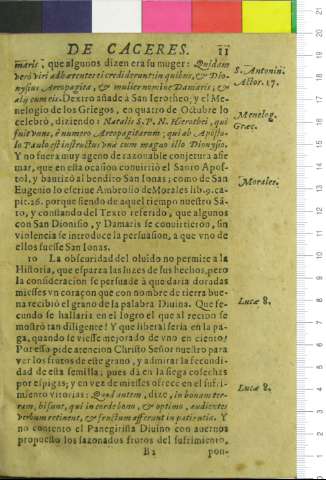 DE CACERES. 11
maris, que algunos dizen era su muger: Quidam
verò viri adhærentes ei crediderunt: in quibus, & Dio-
nysius Areopagita, & mulier nomine Damaris, &
alij cum eis. Dextro añade à San Ierotheo; y el Me-
nelogio de los Griegos, en quatro de Octubre lo
celebrò, diziendo: Natalis S. P. N. Hierothei, qui
fuit vnus, è numero Areopagitarum; qui ab Aposto-
lo Paulo est instructus vna cum magno illo Dionysio.
Y no fuera muy ageno de razonable conjetura afir-
mar, que en esta ocasion conuirtiò el Santo Apos-
tol, y bautizò al bendito San Ionas; como de San
Eugenio lo refiere Ambrosio de Morales lib. 9. ca-
pit. 26. porque siendo de aquel tiempo nuestro Sã-
to, y constando del Texto referido, que algunos
con San Dionisio, y Damaris se conuirtieron, sin
violencia se introduce la persuasion, a que vno de
ellos fuesse San Ionas.
10 La obscuridad del oluido no permite a la
Historia, que esparza las luzes de sus hechos, pero
la consideracion se persuade à que daria doradas
miesses vn coraçon que con nombre de tierra bue-
na recibiò el grano de la palabra Diuina. Que fe-
cundo se hallaria en el logro el que al recibo se
mostrò tan diligente! Y que liberal seria en la pa-
ga, quando se viesse mejorado de vno en ciento!
Por esso pide atencion Christo Señor nuestro para
ver los frutos de este grano, y admirar la fecundi-
dad de esta semilla; pues dà en la siega cosechas
por espigas; y en vez de miesses ofrece en el sufri-
miento vitorias: Quod autem, dize, in bonam ter-
ram, hi sunt, qui in corde bono, & optimo, audientes
verbum retinent, & fructum afferunt in patientia. Y
no contento el Panegirista Diuino con auernos
propuesto los sazonados frutos del sufrimiento,
B 2 pon-
S. Antonin.
Actor. 17.
Menelog.
Græc.
Morales.
Lucæ 8.
Lucæ 8.